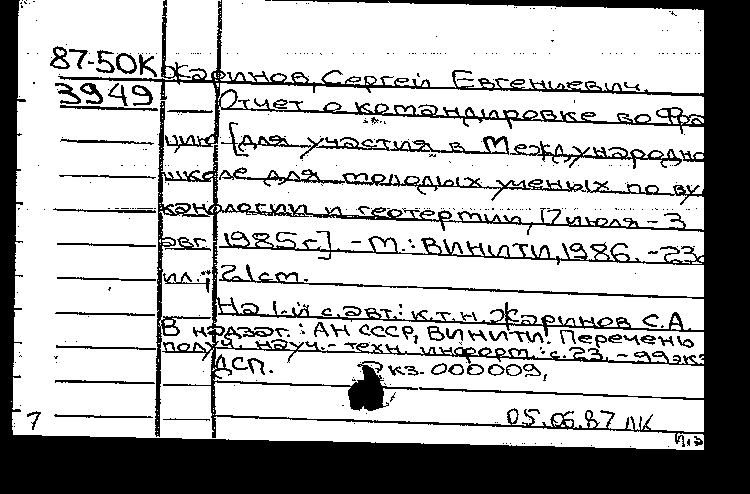 87-50К Жаринов, Сергей Евгениевич.
3949 Отчет о командировке во Фра
цию [для участия в Международно
школе для молодых ученых по ву
канологии и геотермии, 17 июля - 3
авг. 1985 г.]. - М.: ВИНИТИ, 1986. - 23с
ил.; 21 см.
На 1-й с. авт.: к.т.н. Жаринов С.А.
В надзаг.: АН СССР, ВИНИТИ. Перечень
получ. науч.-техн. информ.: с. 23. - 99 экз
ДСП. Экз. 000009,
05.06.87 ЛК
7